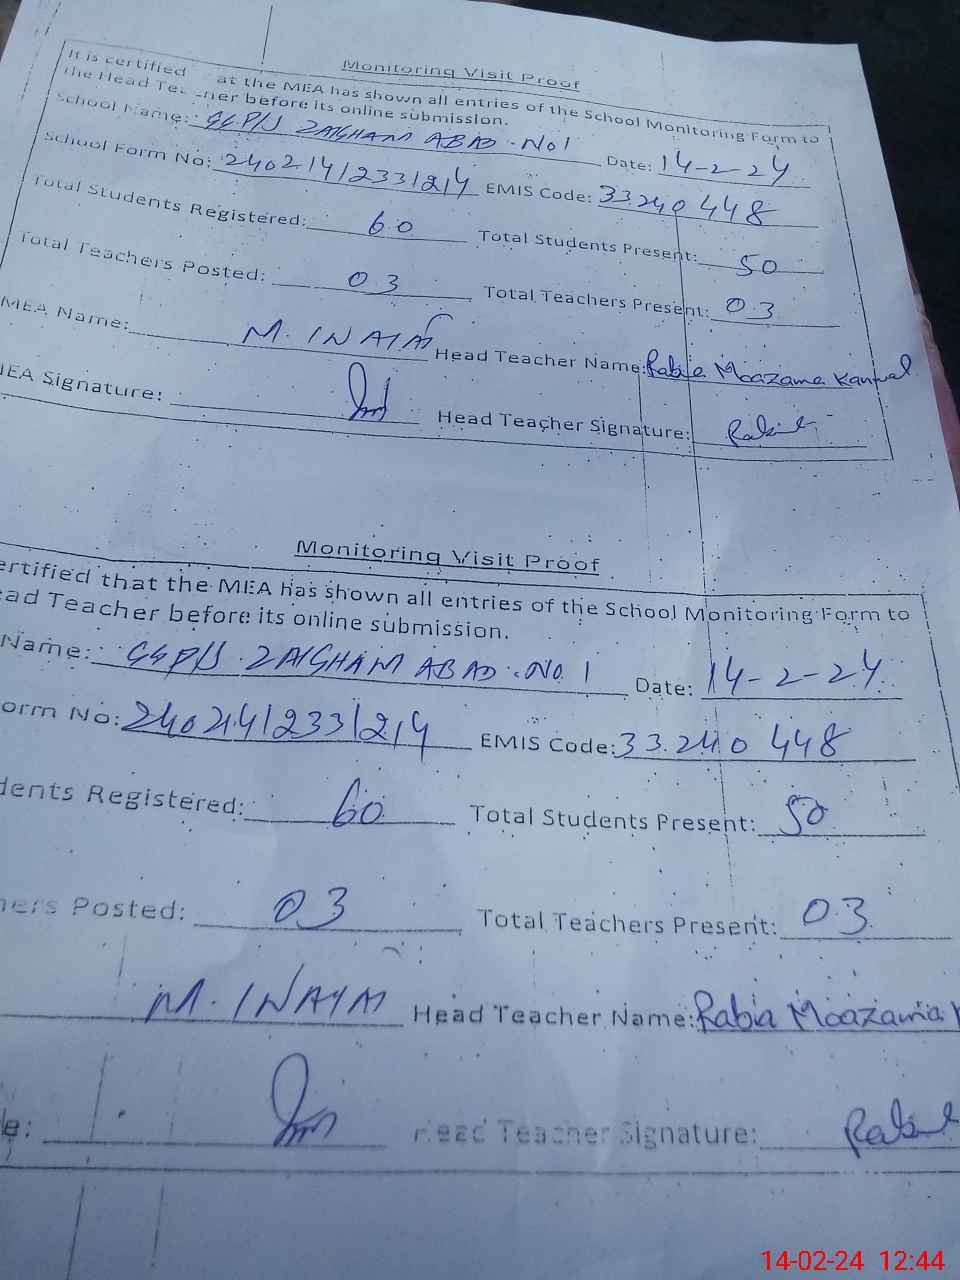 Monitoring Visit Proof
It is certified at the MEA has shown all entries of the School Monitoring Form to
the Head Te ner before its online submission.
School Name: GGP/S ZAIGHAM ABAD. No 1 Date: 14-2-24
School Form No: 24021412331214 EMIS Code: 33240448
Total Students Registered: 60 Total Students Present: 50
Total Teachers Posted: 03 Total Teachers Present: 03
MEA Name: M. INAYAT Head Teacher Name: Rabia Moazama Kanwal
MEA Signature: Head Teacher Signature: Rabia
Monitoring Visit Proof
ertified that the MEA has shown all entries of the School Monitoring Form to
ead Teacher before its online submission.
Name: GGP/S ZAIGHAM ABAD. No. 1 Date: 14-2-24
orm No: 24021412331214 EMIS Code: 33240448
dents Registered: 60 Total Students Present: 50
hers Posted: 03 Total Teachers Present: 03
M. INAYAT Head Teacher Name: Rabia Moazama K
e: Head Teacher Signature: Rabia
14-02-24 12:44